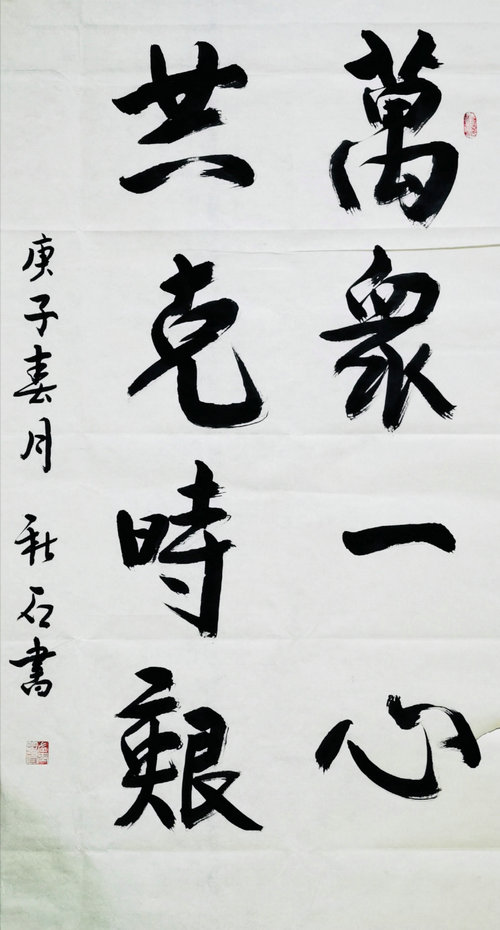 萬衆一心
共克時艱
庚子春月 秋石書